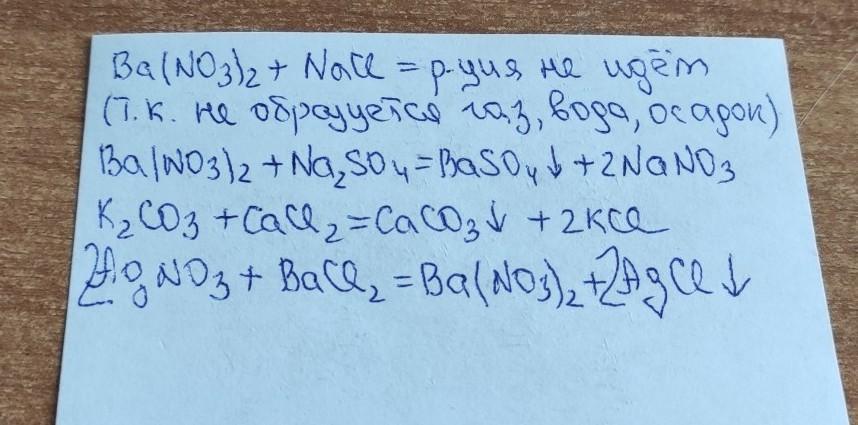 Ba(NO3)2 + NaCl = р-ция не идёт
(т.к. не образуется газ, вода, осадок)
Ba(NO3)2 + Na2SO4 = BaSO4↓ + 2NaNO3
K2CO3 + CaCl2 = CaCO3↓ + 2KCl
2AgNO3 + BaCl2 = Ba(NO3)2 + 2AgCl↓